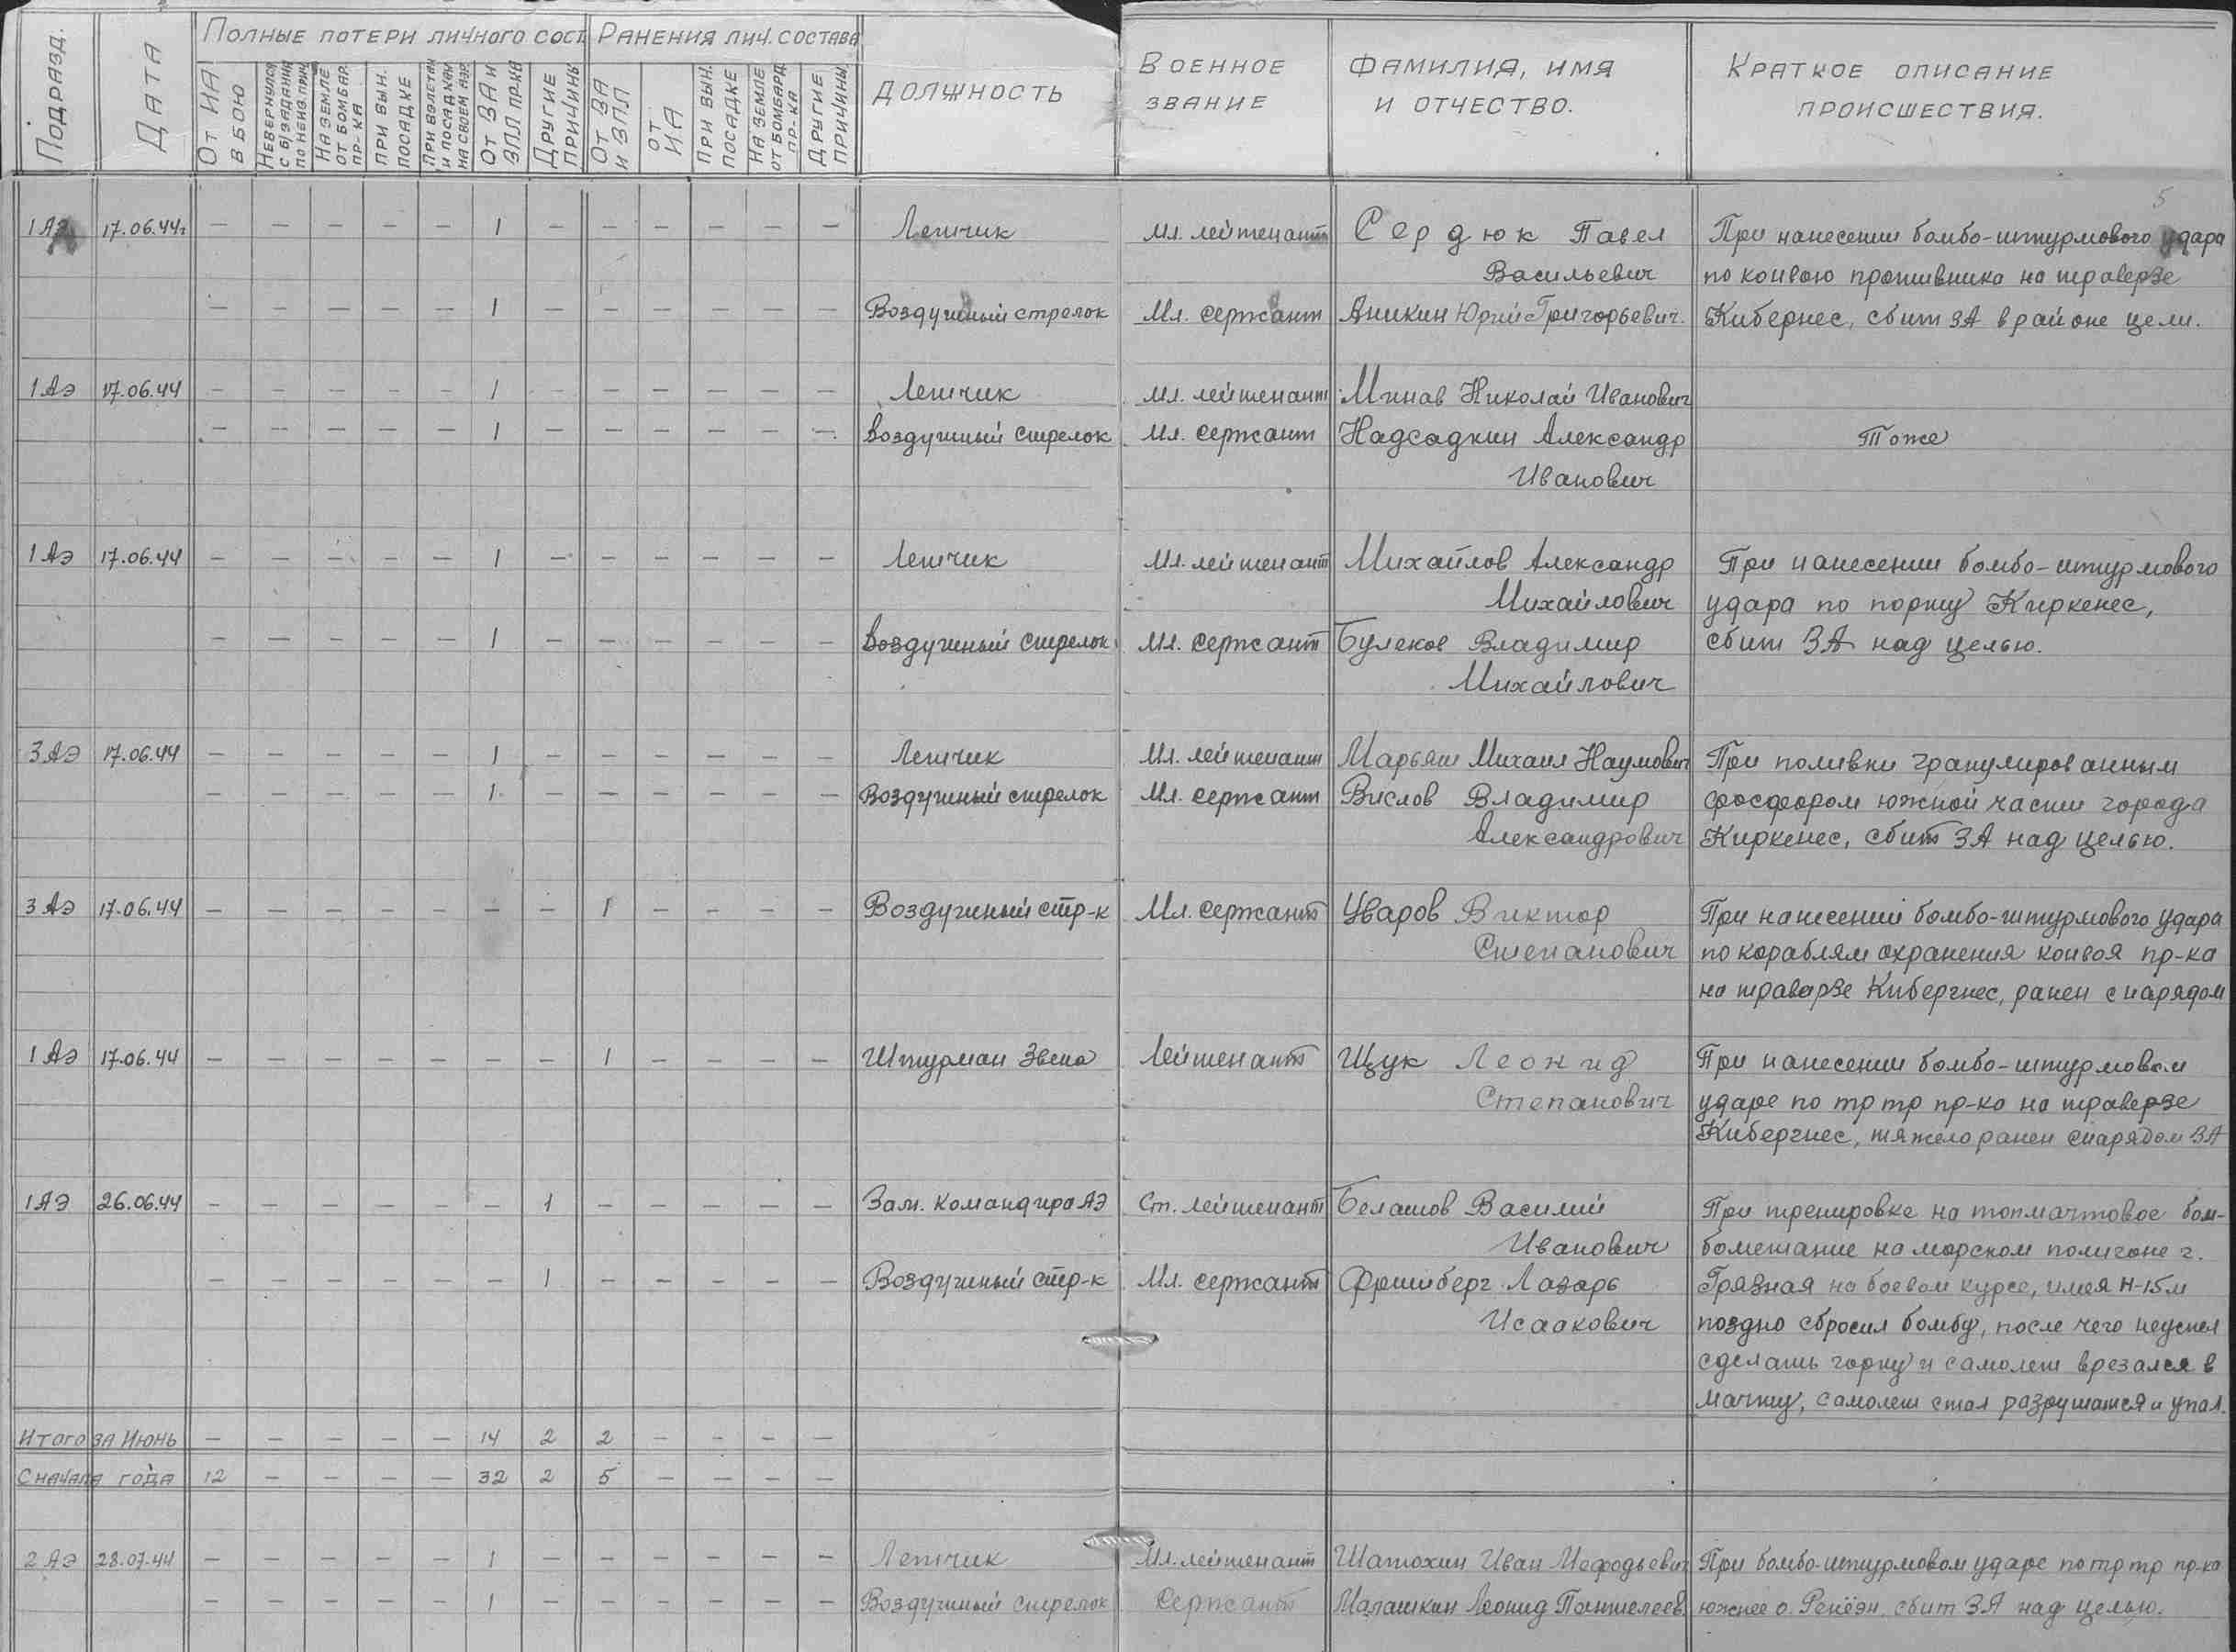 Подразд.
Дата
Полные потери личного сост.
От ИА в бою
Невернулся с б/задания по неизв. прич.
На земле от бомбар. пр-ка
При вын. посадке
При взлетах и посадках на своем аэр.
От ЗА и ЗПЛ пр-ка
Другие причины
Ранения лич. состава
От ЗА и ЗПЛ
От ИА
При вын. посадке
На земле от бомбард. пр-ка
Другие причины
Должность
Военное звание
Фамилия, имя и отчество.
Краткое описание происшествия.
5
1 АЭ 17.06.44г — — — — — 1 — — — — — — Летчик Мл. лейтенант Сердюк Павел При нанесении бомбо-штурмового удара
Васильевич по конвою противника на траверзе
— — — — — 1 — — — — — — Воздушный стрелок Мл. сержант Аникин Юрий Григорьевич. Кибернес, сбит ЗА в районе цели.
1 АЭ 17.06.44 — — — — — 1 — — — — — — Летчик Мл. лейтенант Минав Николай Иванович
— — — — — 1 — — — — — — Воздушный стрелок Мл. сержант Надсадкин Александр Тоже
Иванович
1 АЭ 17.06.44 — — — — — 1 — — — — — — Летчик Мл. лейтенант Михайлов Александр При нанесении бомбо-штурмового
Михайлович удара по порту Киркенес,
— — — — — 1 — — — — — — Воздушный стрелок Мл. сержант Булеков Владимир сбит ЗА над целью.
Михайлович
3 АЭ 17.06.44 — — — — — 1 — — — — — — Летчик Мл. лейтенант Марьяш Михаил Наумович При поливки гранулированным
— — — — — 1 — — — — — — Воздушный стрелок Мл. сержант Вислов Владимир фосфором южной части города
Александрович Киркенес, сбит ЗА над целью.
3 АЭ 17.06.44 — — — — — — — 1 — — — — Воздушный стр-к Мл. сержант Уваров Виктор При нанесении бомбо-штурмового удара
Степанович по кораблям охранения конвоя пр-ка
на траверзе Кибергнес, ранен снарядом
1 АЭ 17.06.44 — — — — — — — 1 — — — — Штурман Звена Лейтенант Щук Леонид При нанесении бомбо-штурмовом
Степанович ударе по тр тр пр-ка на траверзе
Кибергнес, тяжело ранен снарядом ЗА
1 АЭ 26.06.44 — — — — — — 1 — — — — — Зам. командира АЭ Ст. лейтенант Белашов Василий При тренировке на топмачтовое бом-
Иванович бометание на морском полигоне г.
— — — — — — 1 — — — — — Воздушный стр-к Мл. сержант Фришберг Лазарь Грязная на боевом курсе, имея Н-15м
Исаакович поздно сбросил бомбу, после чего неуспел
сделать горку и самолет врезался в
мачту, самолет стал разрушатся и упал.
Итого за Июнь — — — — — 14 2 2 — — — —
Сначала года 12 — — — — 32 2 5 — — — —
2 АЭ 28.07.44 — — — — — 1 — — — — — — Летчик Мл. лейтенант Шатохин Иван Мефодьевич При бомбо-штурмовом ударе по тр тр пр-ка
— — — — — 1 — — — — — — Воздушный стрелок Сержант Малашкин Леонид Пантелеев. южнее о. Ренёэн сбит ЗА над целью.